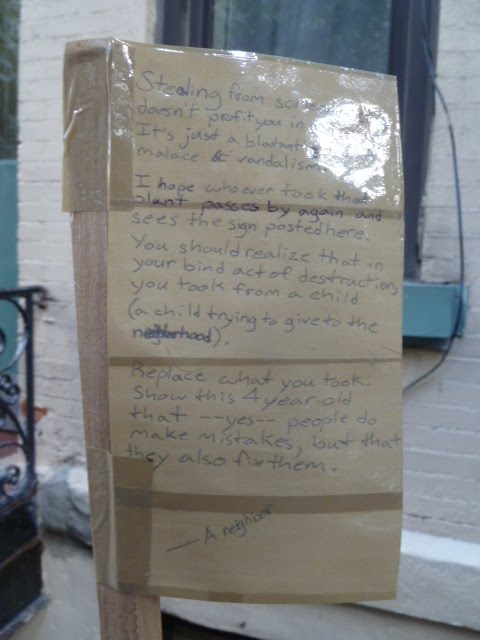 Stealing from
doesn't profit you in
It's just a blatant
malace & vandalism
I hope whoever took that
plant passes by again and
sees the sign posted here.
You should realize that in
your bind act of destruction,
you took from a child
(a child trying to give to the
neghborhood).
Replace what you took.
Show this 4 year-old
that --yes-- people do
make mistakes, but that
they also fix them.
— A neighbor